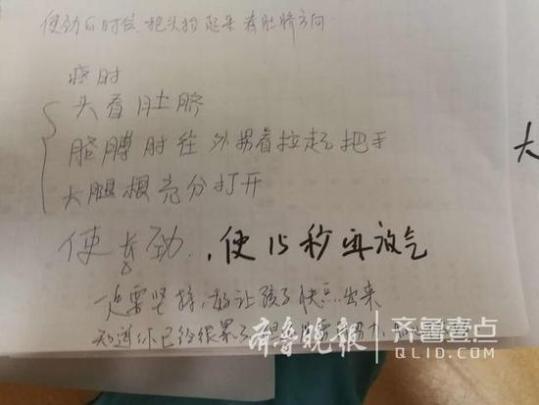 使劲的时候把头抬起来看肚脐方向
疼时
头看肚脐
胳膊肘往外拐着拉起把手
大腿根充分打开
使长劲,使15秒再放气
大
一定要坚持,好让孩子快点出来
知道你已经很累了
齐鲁晚报 齐鲁壹点
QLID.COM